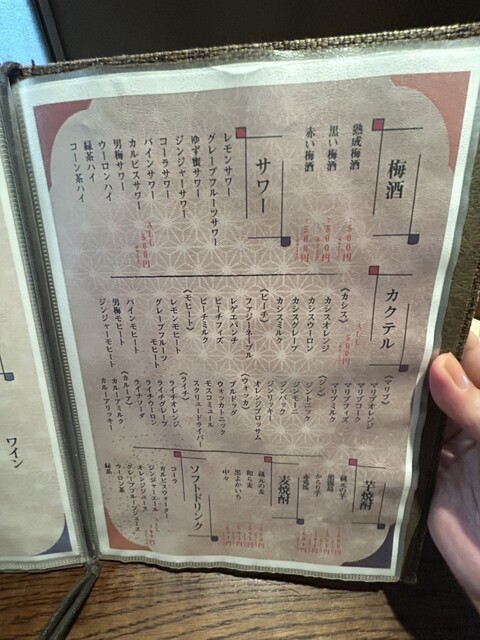 梅酒
熟成梅酒
黒い梅酒
赤い梅酒
500円
500円
500円
サワー
レモンサワー
グレープフルーツサワー
ゆず蜜サワー
ジンジャーサワー
コーラサワー
パインサワー
カルピスサワー
男梅サワー
ウーロンハイ
緑茶ハイ
コーン茶ハイ
ALL
500円
カクテル
ALL
500円
〈カシス〉
カシスオレンジ
カシスウーロン
カシスグレープ
カシスミルク
〈ピーチ〉
ファジーネーブル
レゲエパンチ
ピーチフィズ
ピーチミルク
〈モヒート〉
レモンモヒート
グレープフルーツ
モヒート
パインモヒート
男梅モヒート
ジンジャーモヒート
〈マリブ〉
マリブオレンジ
マリブコーク
マリブフィズ
マリブミルク
〈ジン〉
ジントニック
ジンモーニ
ジンバック
ジンリッキー
オレンジブロッサム
〈ウォッカ〉
ブルドッグ
ウォッカトニック
モスコミュール
スクリュードライバー
〈ライチ〉
ライチオレンジ
ライチグレープ
ライチウーロン
ライチソーダ
〈カルーア〉
カルーアミルク
カルーアリッキー
芋焼酎
蔵元の芋
黒霧島
からり芋
赤霧島
麦焼酎
蔵元の麦
和ら麦
黒よかいち
中々
ソフトドリンク
コーラ
カルピスウォーター
ジンジャーエール
オレンジジュース
グレープフルーツジュース
ウーロン茶
緑茶
ワイン